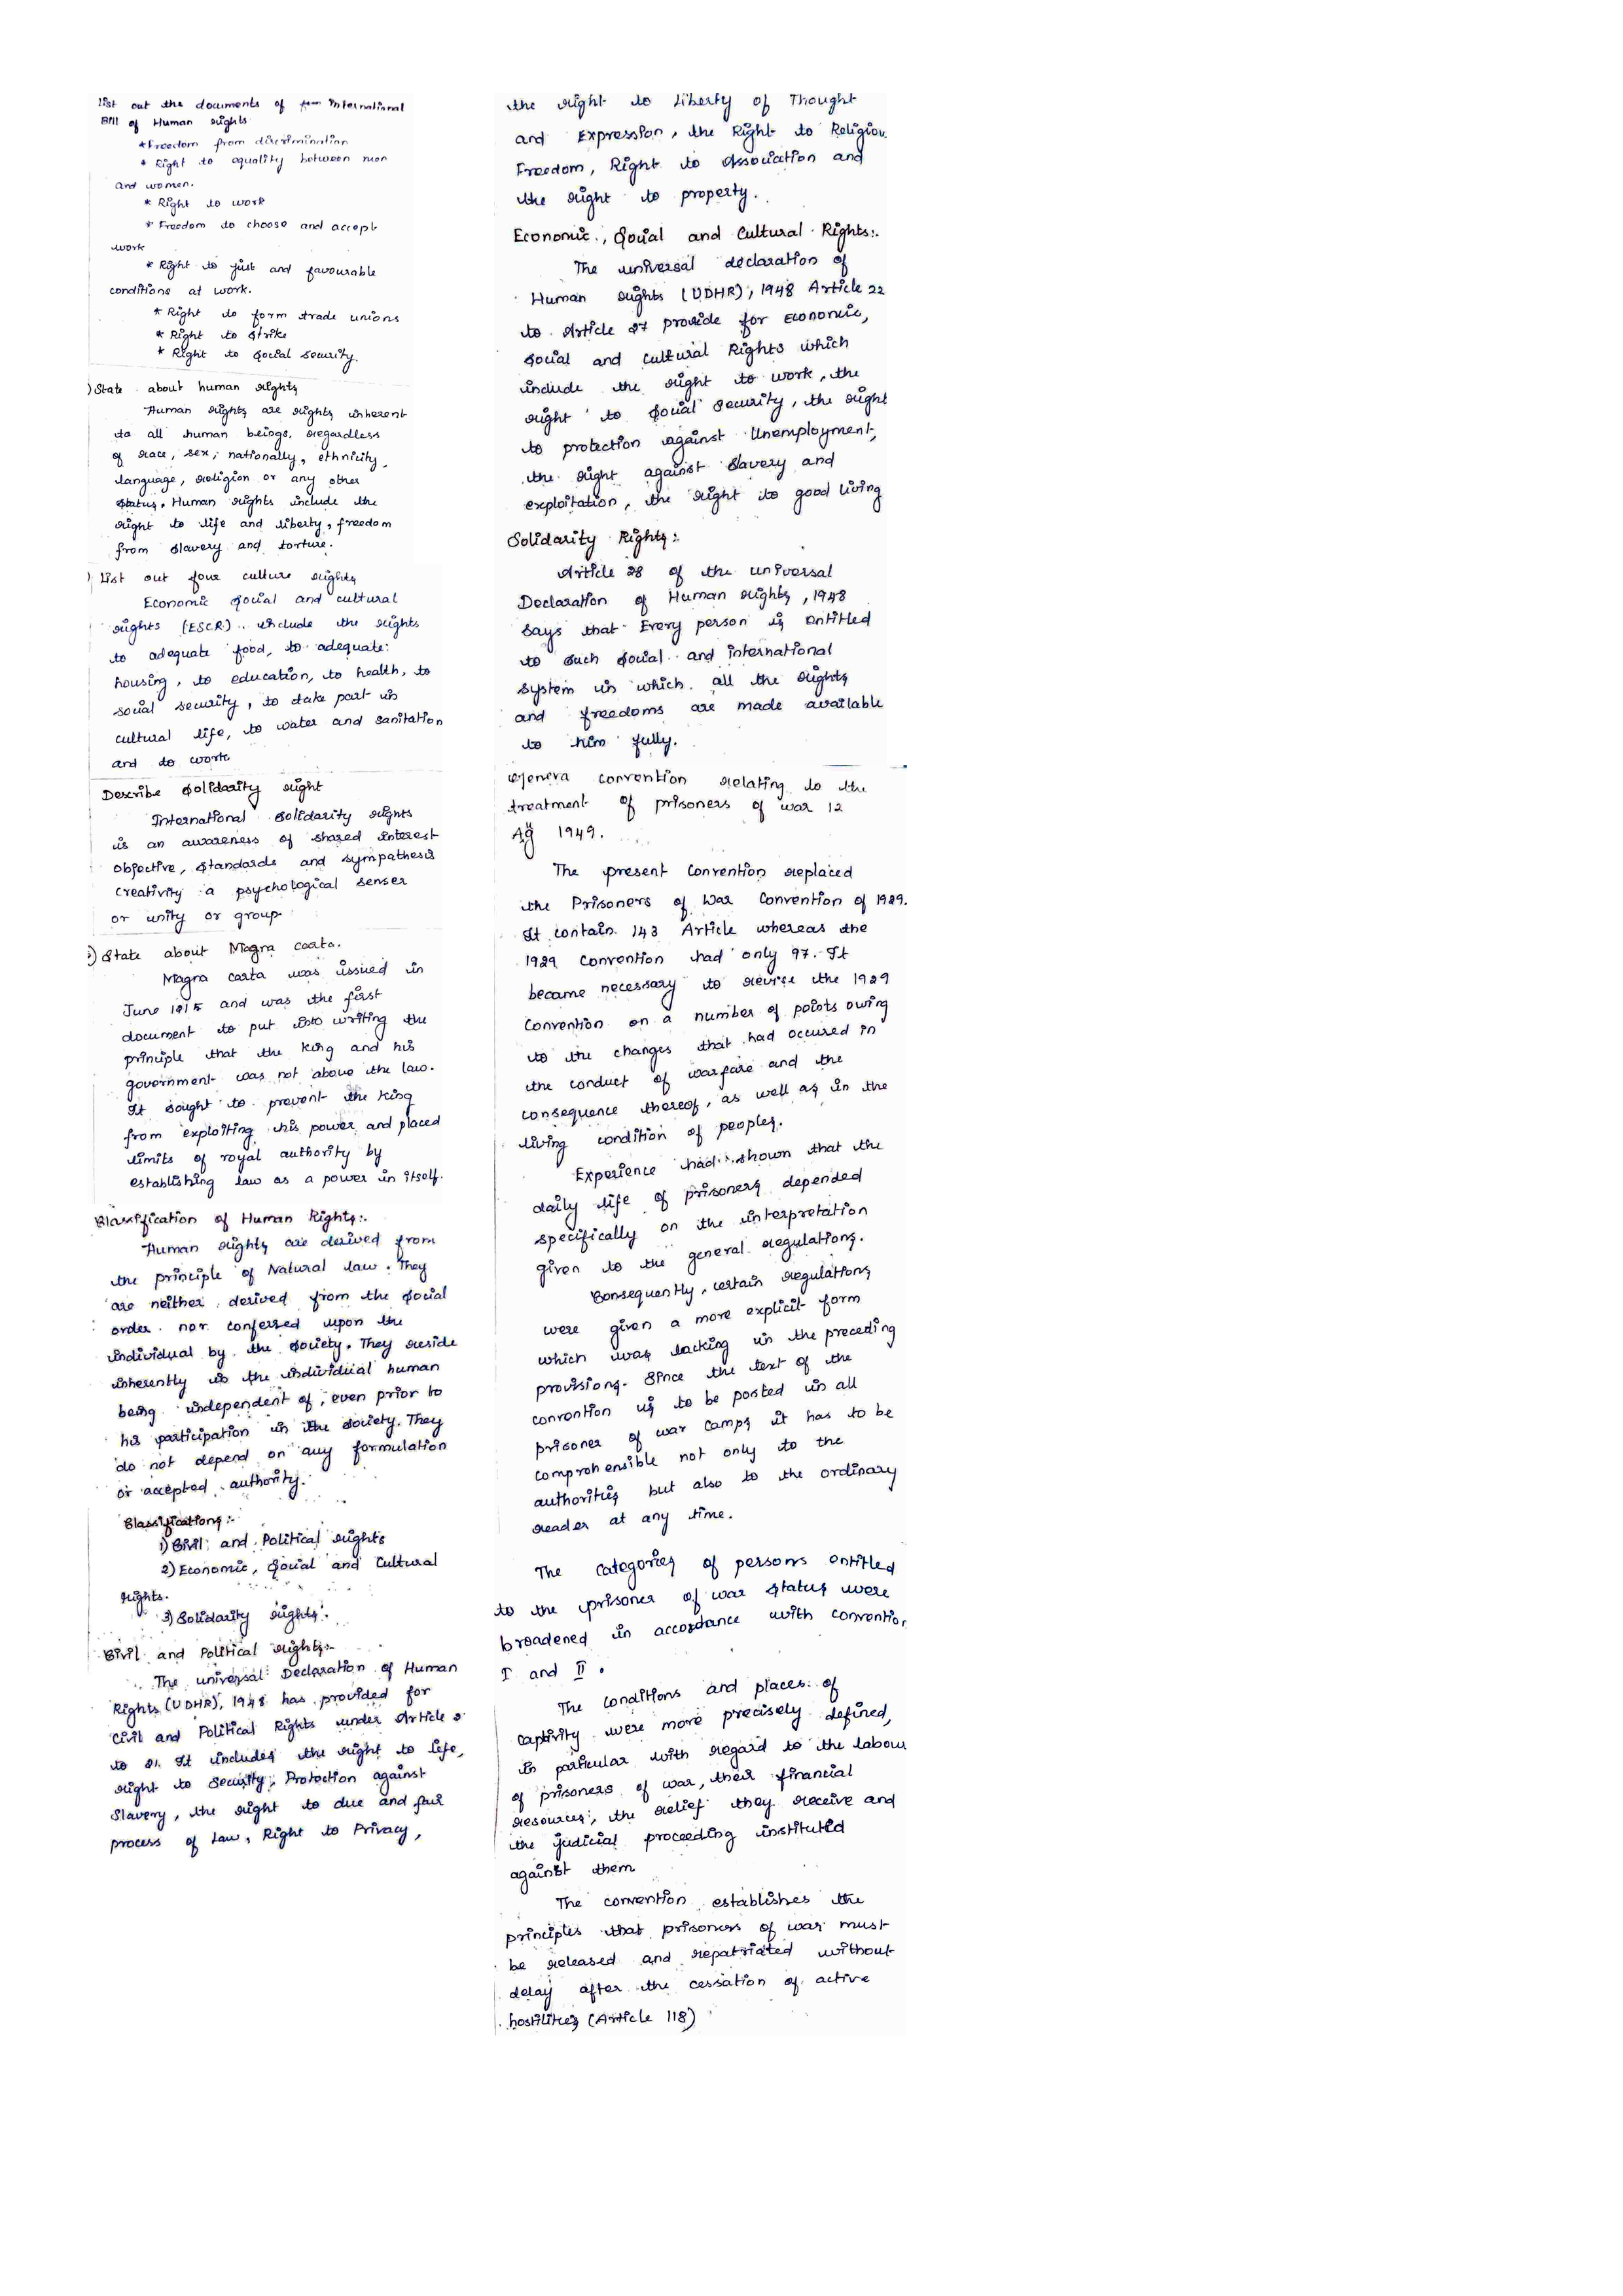 List out the documents of International
Bill of Human rights
*Freedom from discrimination
* Right to equality between men
and women.
* Right to work
* Freedom to choose and accept
work
* Right to just and favourable
conditions at work.
* Right to form trade unions
* Right to strike
* Right to social security.
) State about human rights
Human rights are rights inherent
to all human beings, regardless
of race, sex, nationally, ethnicity,
language, religion or any other
status. Human rights include the
right to life and liberty, freedom
from slavery and torture.
) List out four culture rights
Economic social and cultural
rights (ESCR).. include the rights
to adequate food, to adequate:
housing, to education, to health, to
social security, to take part in
cultural life, to water and sanitation
and to work
Describe solidarity right
International solidarity rights
is an awareness of shared interest
objective, standards and sympathesis
creativity a psychological senser
or unity or group.
) State about Magra carta.
Magra carta was issued in
June 1215 and was the first
document to put into writing the
principle that the king and his
government was not above the law.
It sought to prevent the king
from exploiting his power and placed
limits of royal authority by
establishing law as a power in itself.
Classification of Human Rights:.
Human rights are derived from
the principle of Natural law. They
are neither derived from the social
order nor conferred upon the
individual by the society. They reside
inherently in the individual human
being independent of, even prior to
his participation in the society. They
do not depend on any formulation
or accepted authority.
Classifications:-
1) Civil and Political rights
2) Economic, Social and Cultural
rights.
3) Solidarity rights.
Civil and Political rights:-
The universal Declaration of Human
Rights (UDHR), 1948 has provided for
Civil and Political Rights under Article 3
to 21. It includes the right to life,
right to Security, Protection against
Slavery, the right to due and fair
process of Law, Right to Privacy,
the right to Liberty of Thought
and Expression, the Right to Religion
Freedom, Right to Association and
the right to property.
Economic, Social and Cultural Rights:.
The universal declaration of
Human rights (UDHR), 1948 Article 22
to Article 27 provide for Economic,
Social and Cultural Rights which
include the right to work, the
right to Social Security, the right
to protection against Unemployment,
the right against Slavery and
exploitation, the right to good living
Solidarity Rights:
Article 28 of the universal
Declaration of Human rights, 1948
Says that Every person is entitled
to such social and international
System in which all the rights
and freedoms are made available
to him fully.
Geneva convention relating to the
treatment of prisoners of war 12
Ag 1949.
The present Convention replaced
the Prisoners of War Convention of 1929.
It contain 143 Article whereas the
1929 Convention had only 97. It
became necessary to revise the 1929
Convention on a number of points owing
to the changes that had occured in
the conduct of warfare and the
consequence thereof, as well as in the
living condition of peoples.
Experience had shown that the
daily life of prisoners depended
specifically on the interpretation
given to the general regulations.
Consequently, certain regulations
were given a more explicit form
which was lacking in the preceding
provisions. Since the text of the
convention is to be posted in all
prisoner of war camps it has to be
comprehensible not only to the
authorities but also to the ordinary
reader at any time.
The categories of persons entitled
to the prisoner of war status were
broadened in accordance with conventio
I and II.
The conditions and places of
captivity were more precisely defined,
in particular with regard to the labour
of prisoners of war, their financial
resources, the relief they receive and
the judicial proceeding instituted
against them
The convention establishes the
principles that prisoners of war must
be released and repatriated without
delay after the cessation of active
hostilities (Article 118)